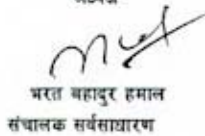 भरत बहादुर हमाल
संचालक सर्वसाधारण